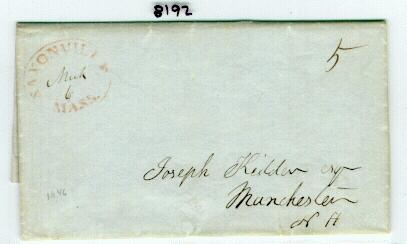 8192
SAXONVILLE
Mch
6
MASS.
5
Joseph Kidder esqr
Manchester
N H
1846